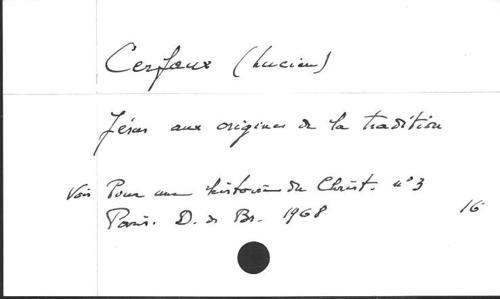 Cerfaux (Lucien)
Jésus aux origines de la tradition
Voir Pour une histoire du Christ. n° 3
Paris. D. de Br. 1968 16